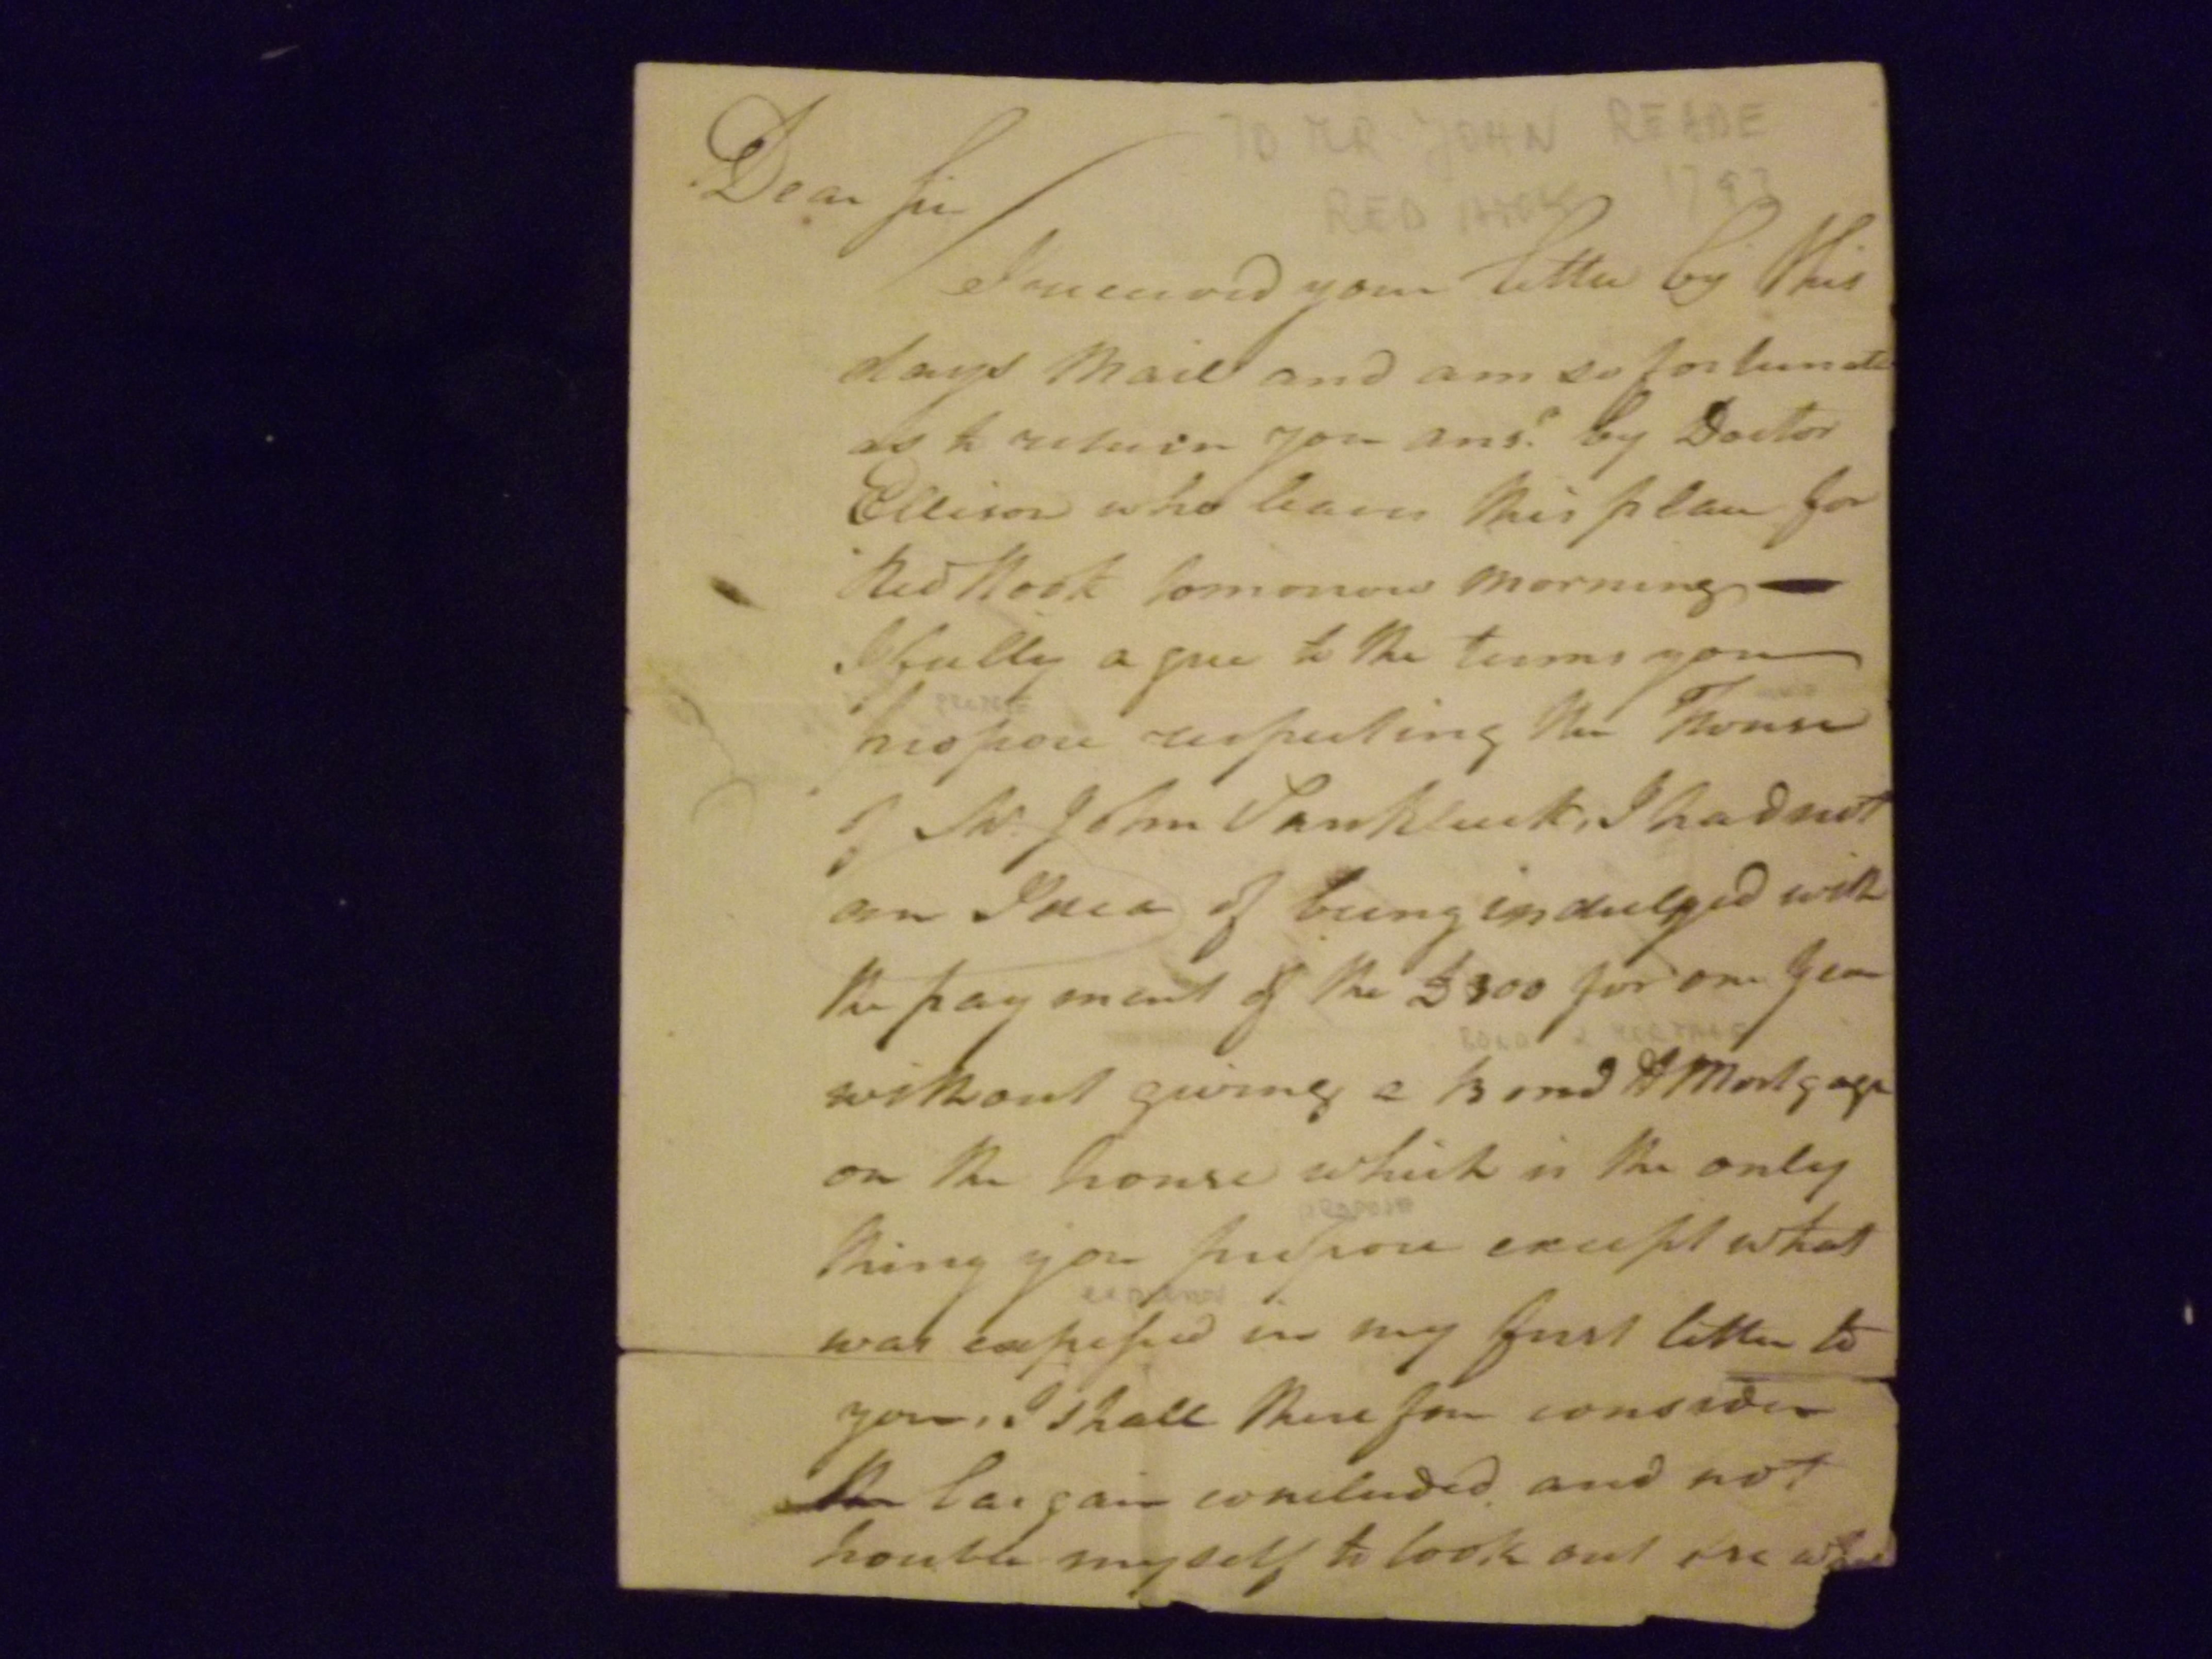 TO MR JOHN READE
RED HOOK 1793
Dear Sir
I received your letter by this
days Mail and am so fortunate
as to return you ansr. by Doctor
Ellison who leaves this place for
Red Hook tomorrow morning —
I fully agree to the terms you
propose respecting the House
of Mr. John I had not
an Idea of being indulged with
the payment of the £300 for one Year
without giving a Bond & Mortgage
on the house which is the only
thing you propose except what
was expressed in my first letter to
you, I shall therefore consider
the bargain concluded and not
trouble myself to look out